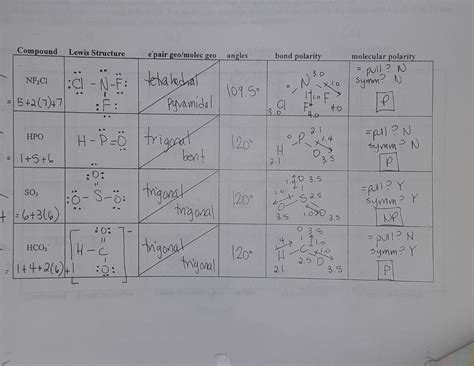 Compound Lewis Structure e⁻pair geo/molec geo angles bond polarity molecular polarity
NF₂Cl
= 5+2(7)+7
:Cl - N - F:
:F:
tetrahedral
pyramidal
109.5°
N 3.0
1.0
Cl F F
3.0 4.0
= pull? N
symm? N
P
HPO
= 1+5+6
H - P = O
trigonal
bent
120°
P 2.1
1.4
H O
2.1 3.5
= pull? N
symm? N
P
SO₃
= 6+3(6)
:O:
:O - S - O:
trigonal
trigonal
120°
O 3.5
1.0
O S 2.5
3.5 O 3.5
= pull? Y
symm? Y
NP
HCO₂⁻
= 1+4+2(6)+1
:O:
H - C
:O:
trigonal
trigonal
120°
O 3.5
.4 1.0
H C
2.1 2.5 O 3.5
= pull? N
symm? Y
P